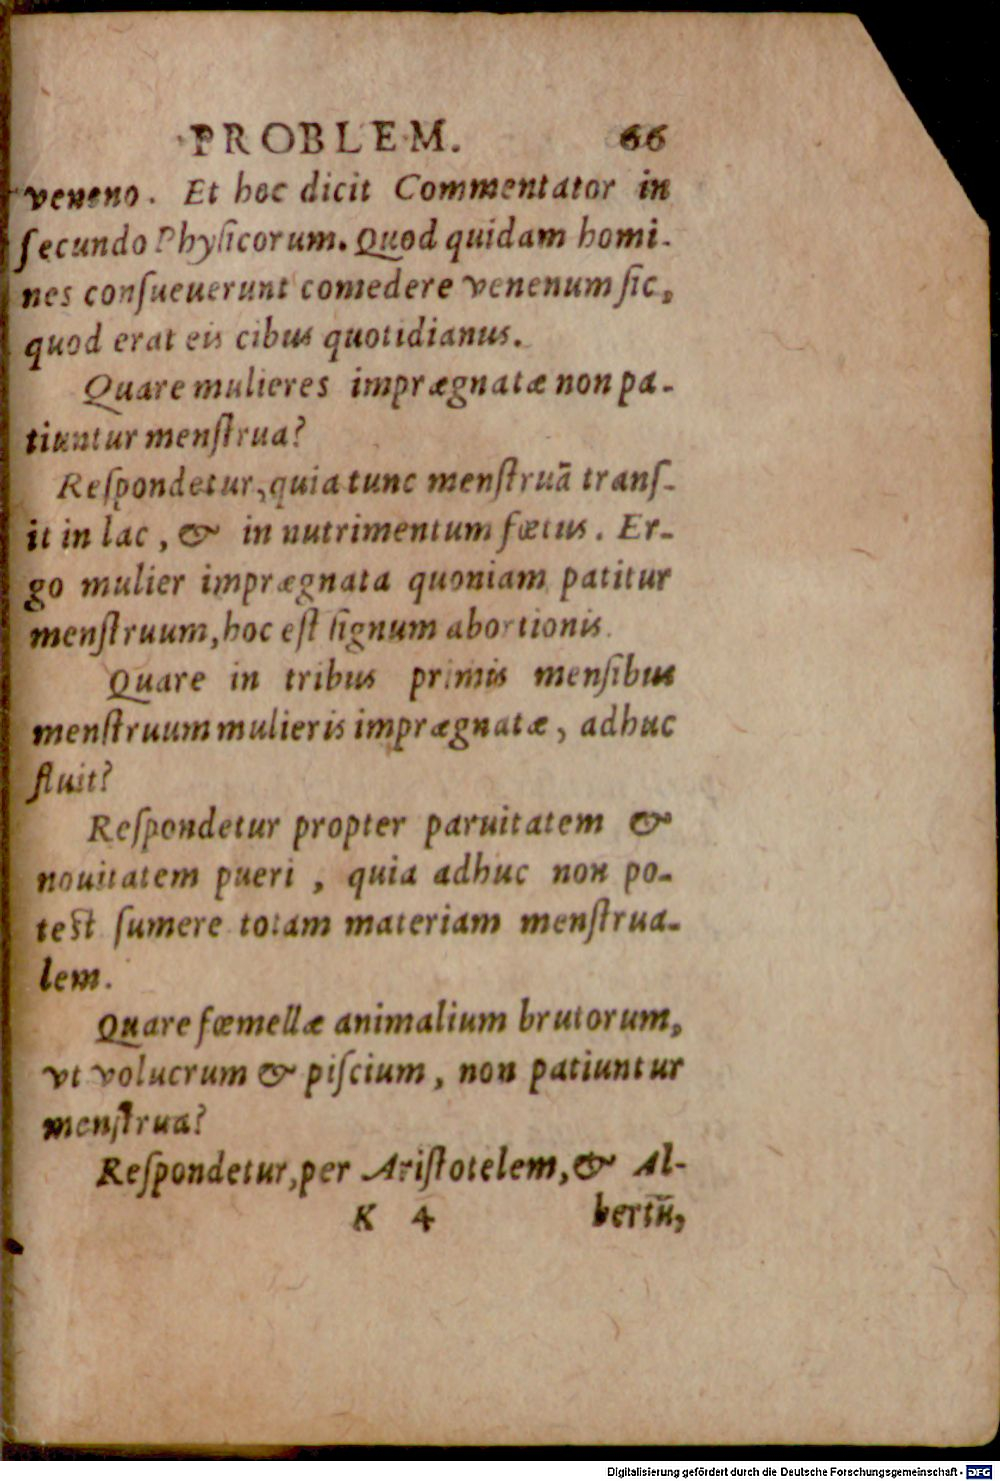 PROBLEM. 66
veneno. Et hoc dicit Commentator in
ſecundo Phyſicorum. Quod quidam homi-
nes conſueuerunt comedere venenum ſic,
quod erat eis cibus quotidianus.
Quare mulieres imprægnatæ non pa-
tiuntur menſtrua?
Reſpondetur, quia tunc menſtruā tranſ-
it in lac, & in nutrimentum fœtus. Er-
go mulier imprægnata quoniam patitur
menſtruum, hoc eſt ſignum abortionis.
Quare in tribus primis menſibus
menſtruum mulieris imprægnatæ, adhuc
fluit?
Reſpondetur propter paruitatem &
nouitatem pueri, quia adhuc non po-
teſt ſumere totam materiam menſtrua-
lem.
Quare fœmellæ animalium brutorum,
vt volucrum & piſcium, non patiuntur
menſtrua?
Reſpondetur, per Ariſtotelem, & Al-
K 4 bertū,
Digitalisierung gefördert durch die Deutsche Forschungsgemeinschaft - DFG